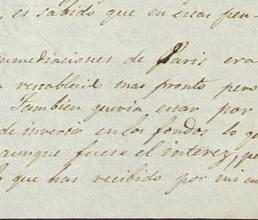 es sabido que en esas pen-
inmediaciones de Paris era
restablecid mas pronto pero
Tambien queria estar por
de inverir en los fondos lo q
aunque fuese el interez, po
que has recibido por mi cu